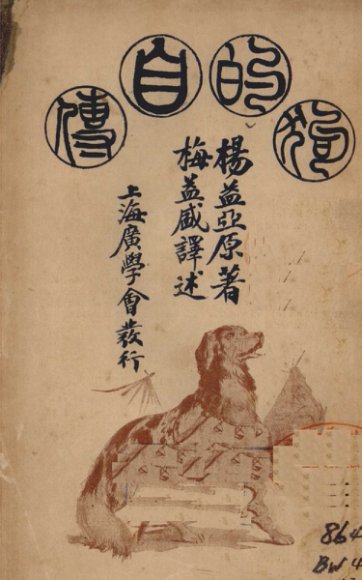 狗的自傳
楊益亞原著
梅益盛譯述
上海廣學會發行
864
BW 4